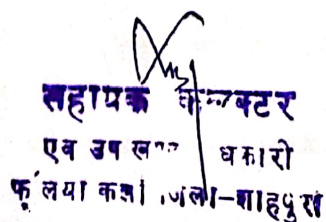 सहायक कलक्टर
एव उप खण्ड धकारी
फूलिया कलां जिला-शाहपुरा